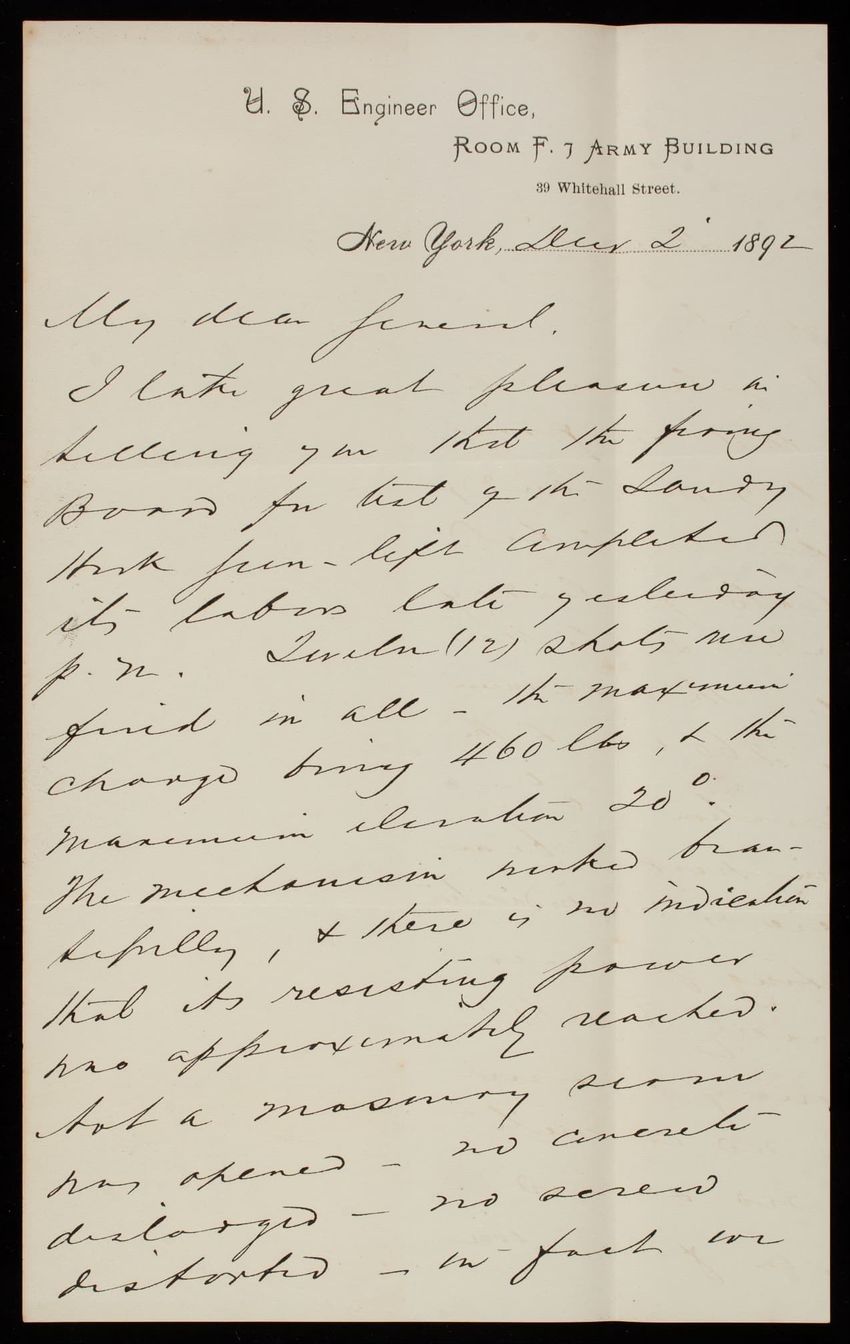 U. S. Engineer Office,
Room F. 7 Army Building
39 Whitehall Street.
New York, Dec 2 1892
My dear General.
I take great pleasure in
telling you that the firing
Board for test of the Sandy
Hook gun-lift completed
its labors late yesterday
p. m. Twelve (12) shots were
fired in all - the maximum
charge being 460 lbs, & the
maximum elevation 20°.
The mechanism worked beau-
tifully, & there is no indication
that its resisting power
was approximately reached.
Not a masonry seam
was opened - no concrete
dislodged - no screw
distorted - in fact we